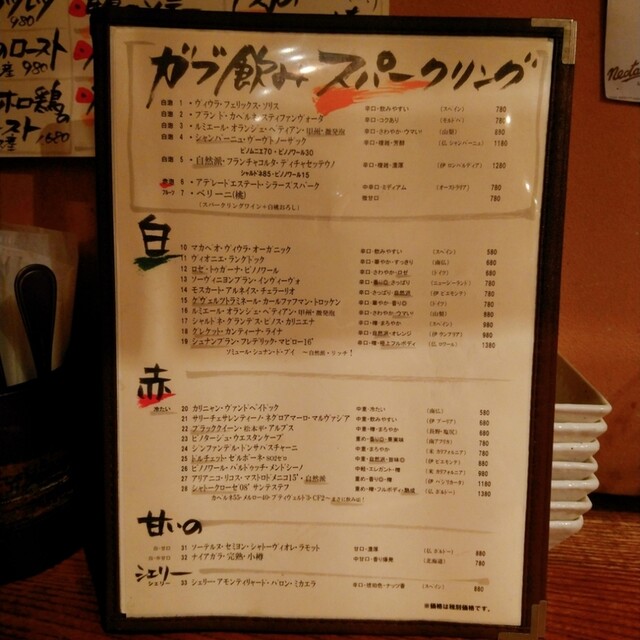 ガブ飲みスパークリング
白泡 1・ヴィウラ・フェリックス・ソリス 辛口・飲みやすい (スペイン) 780
白泡 2・ブラント・カベルネ・スティファンヴォータ 辛口・コクあり 780
白泡 3・ルミエール・オランジェ・ペティアン・甲州・微発泡 辛口・さわやか・ウマい! (山梨) 690
白泡 4・シャンパーニュ・ヴーヴ 辛口・複雑・芳醇 (仏 シャンパーニュ) 1180
ピノムニエ70・ピノノワール30
白泡 5・自然派・フランチャコルタ・ティチャセッテウノ 辛口・複雑・濃厚 (伊 ロンバルディア) 1240
シャルドネ85・ピノノワール15
赤泡 6・アデレードエステート・シラーズスパーク 中辛口・ミディアム (オーストラリア) 780
フルーツ 7・ベリーニ(桃) 微甘口 780
(スパークリングワイン+白桃おろし)
白
10 マカベオ・ヴィウラ・オーガニック 辛口・飲みやすい (スペイン) 580
11 ヴィオニエ・ラングドック 辛口・華やか・すっきり (南仏) 680
12 ロゼ・トゥガーナ・ピノノワール 辛口・さわやか・ロゼ (ドイツ) 680
13 ソーヴィニヨンブラン・インヴィーヴォ 辛口・香り◎・さっぱり (ニュージーランド) 780
14 モスカート・アルネイス・チェラーリオ 辛口・さっぱり・自然派 (伊 ピエモンテ) 780
15 ゲヴュルツトラミネール・カールファフマン・トロッケン 辛口・華やか・香り◎ (ドイツ) 780
16 ルミエール・オランジェ・ペティアン・甲州・微発泡 辛口・さわやか・ウマい! (山梨) 880
17 シャルドネ・グランデス・ビノス・カリニェナ 辛口・樽・まろやか (スペイン) 880
18 ウレケット・カンティーナ・ライナ 辛口・自然派・オレンジ 980
19 シュナンブラン・フレデリック・マビロー16' 辛口・樽・極上フルボディ (仏 ロワール) 1380
ソミュール・シュナント・ブイ ～自然派・リッチ!
赤
冷たい 20 カリニャン・ヴァンドペイドック 中重・冷たい (南仏) 580
21 サリーチェサレンティーノ・ネグロアマーロ・マルヴァジア 中重・飲みやすい (伊 プーリア) 680
22 ブラッククイーン・松本平・アルプス 中重・樽・まろやか (長野・塩尻) 680
23 ピノタージュ・ウエスタンケープ 重め・香り◎・果実味 (南アフリカ) 780
24 ジンファンデル・ドンサバスチャーニ 中重・まろやか (米 カリフォルニア) 780
25 ドルチェット・セルボーネ 中重・自然派・旨味◎ (伊 ピエモンテ) 880
26 ピノノワール・パルドゥッチ・メンドシーノ 中軽・エレガント・樽 (米 カリフォルニア) 980
27 アリアニコ・リコス・マストロドメニコ15'・自然派 重め・香り◎・樽 (伊 バジリカータ) 1180
28 シャトークローゼ'08' サンテステフ 重め・樽・フルボディ・熟成 (仏 ボルドー) 1380
甘いの
白・甘口 31 ソーテルヌ・セミヨン・シャトーヴィオレ・ラモット 甘口・濃厚 (仏 ボルドー) 880
白・中甘口 32 ナイアガラ・完熟・小樽 中甘口・香り爆発 (北海道) 780
シェリー
シェリー 33 シェリー アモンティリャード・バロン・ミカエラ 辛口・琥珀色・ナッツ香 (スペイン) 880
※価格は税別価格です。